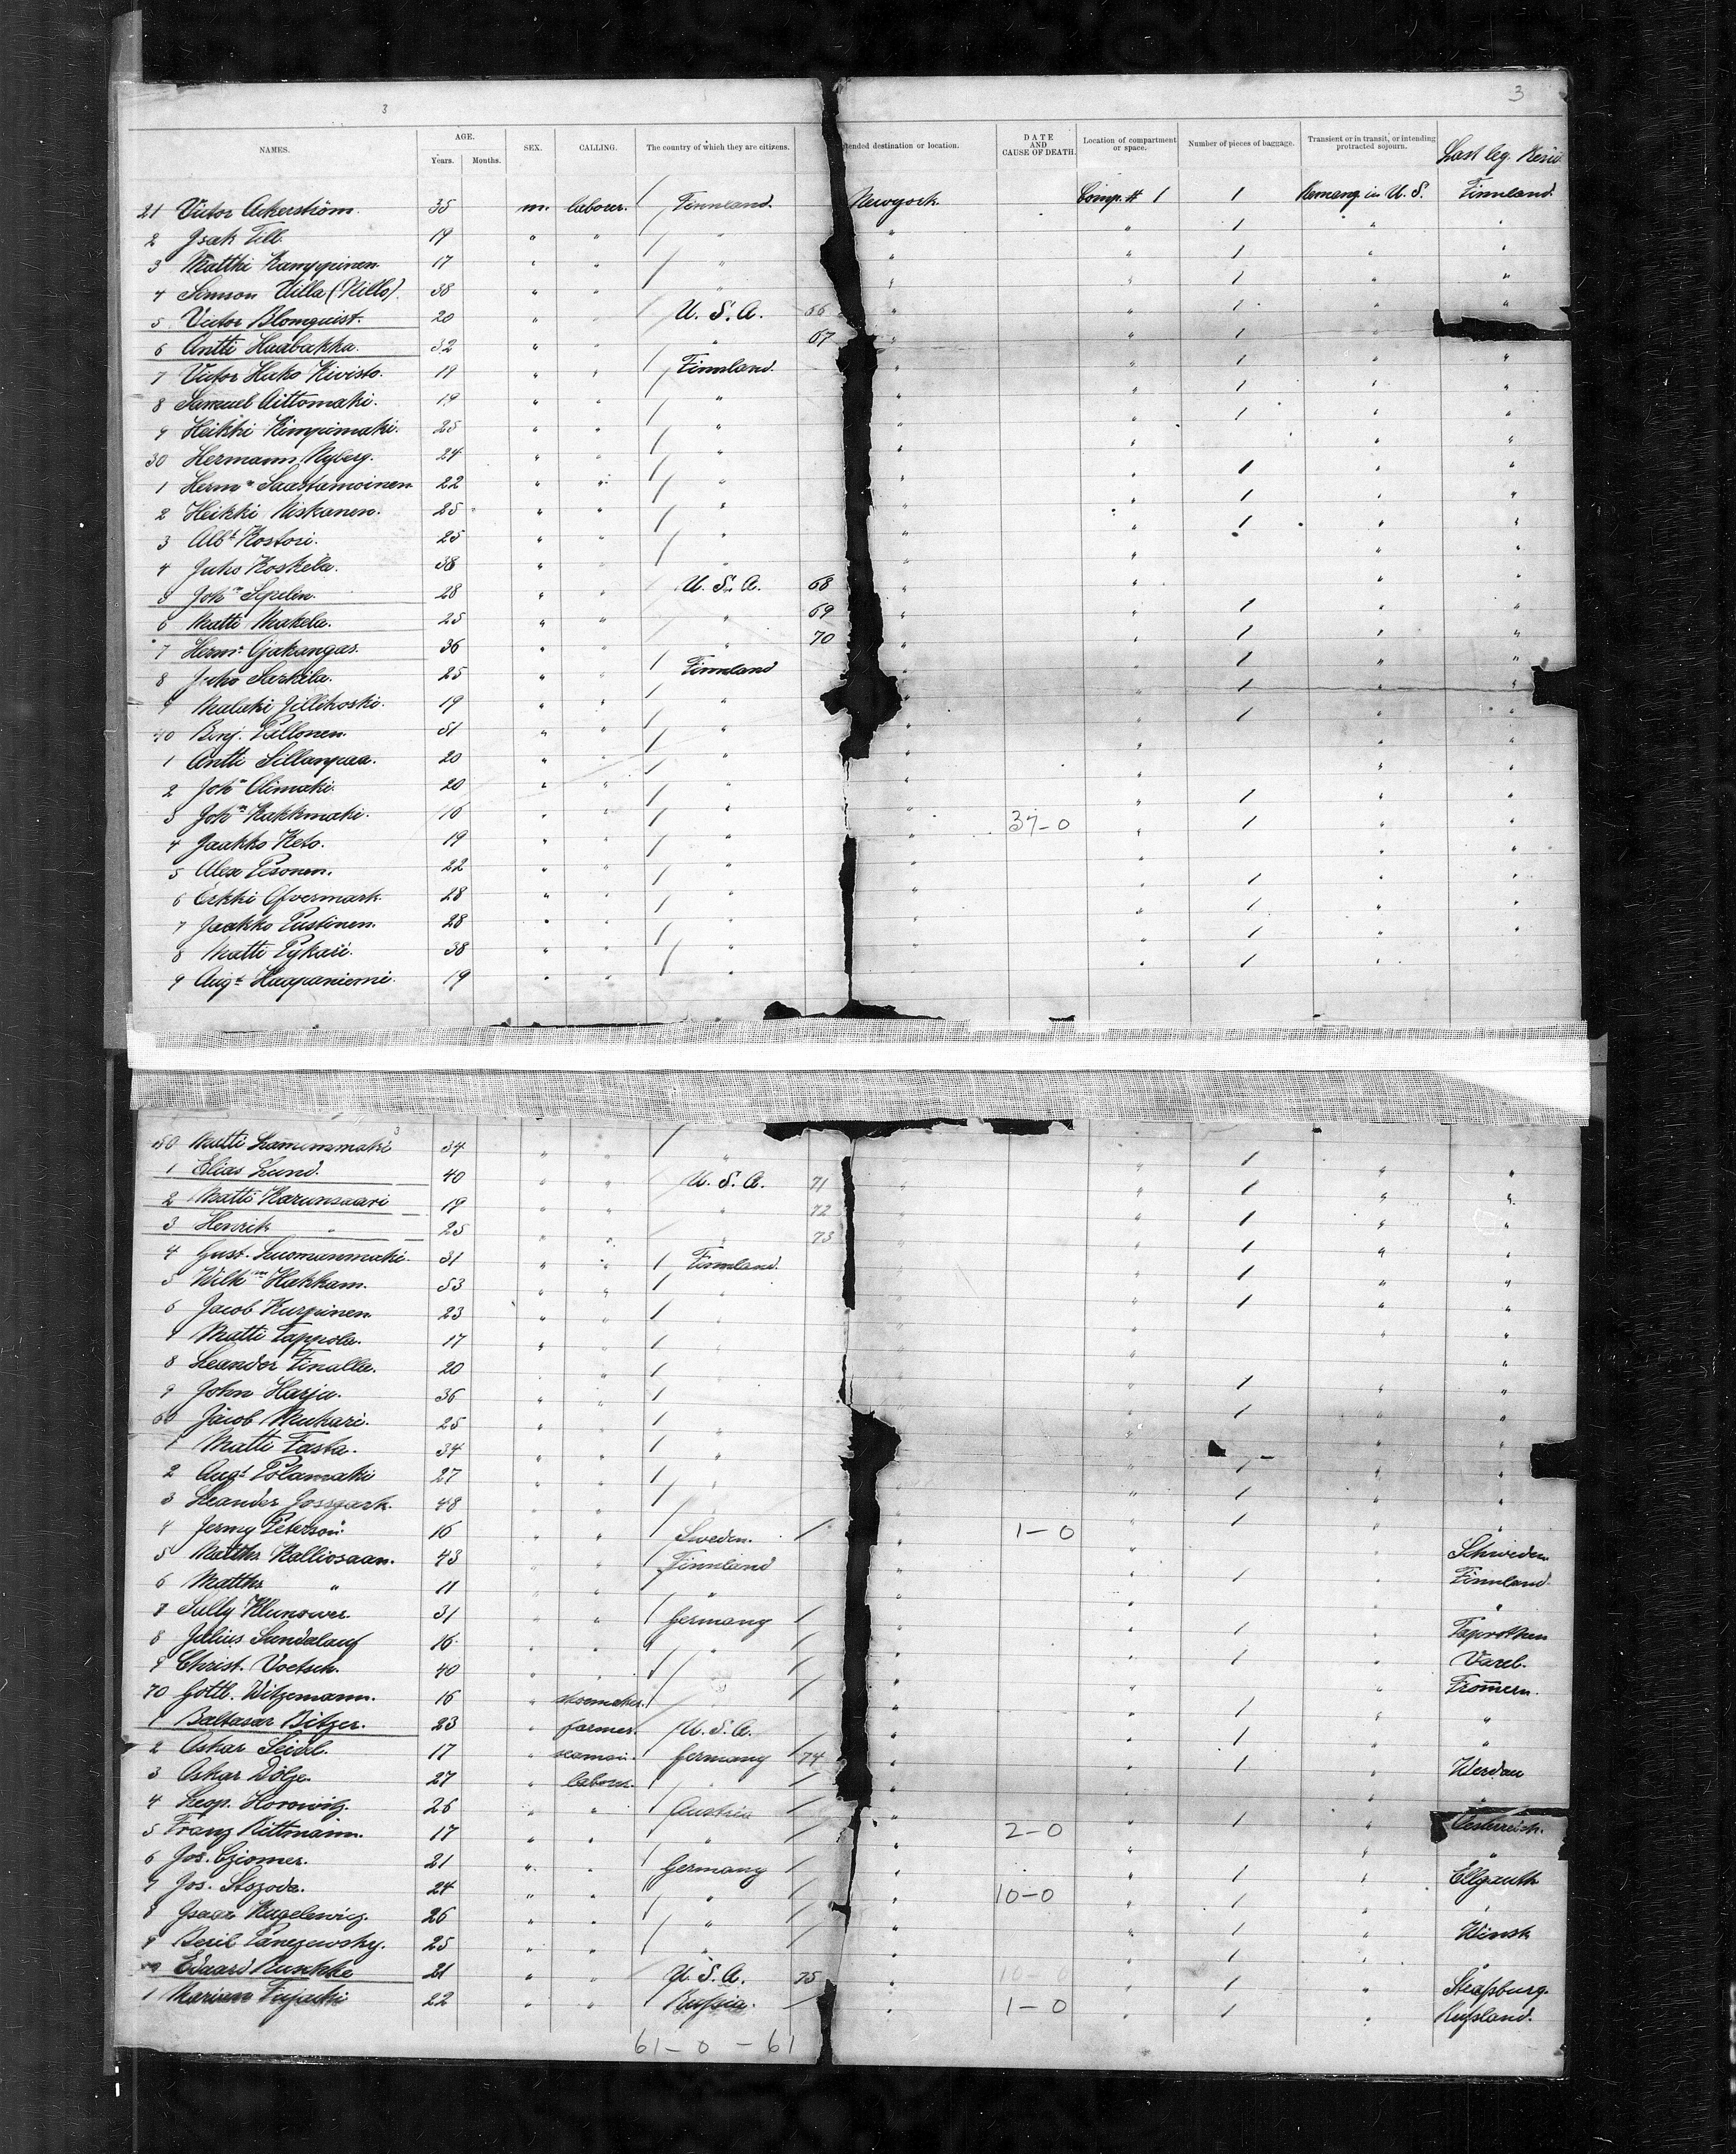 3
3
NAMES. AGE. Years. Months. SEX. CALLING. The country of which they are citizens. ended destination or location. DATE AND CAUSE OF DEATH. Location of compartment or space. Number of pieces of baggage. Transient or in transit, or intending protracted sojourn. Last leg. Resid.
21 Victor Ackerström. 35 m. laborer. / Finnland. Newyork Comp. # 1 1 Remang in U. S. Finnland.
2 Isak Till. 19 " " / " " " 1 " "
3 Matthi Kamppinen 17 " " / " " " 1 " "
4 Simson Villa (Killo). 38 " " / " " " 1 " "
5 Victor Blomquist. 20 " " U. S. A. 66 " " 1 " "
6 Antti Haabakka. 32 " " " 67 " " 1 "
7 Victor Hako Kivisto. 19 " " / Finnland. " " 1 " "
8 Samuel Aittomaki. 19 " " / " " " 1 " "
9 Heikki Kimpimaki. 25 " " / " " " 1 " "
30 Hermann Nyberg. 24 " " / " " " " "
1 Hermn Saastamoinen 22 " " / " " " 1 " "
2 Heikki Niskanen. 25 " " / " " " 1 " "
3 Albt Kostori. 25 " " / " " " 1 " "
4 Juho Koskela. 38 " " / " " " " "
5 John Sepelin. 28 " " U. S. A. 68 " " " "
6 Matti Makela. 25 " " " 69 " " 1 " "
7 Hermn Ojakangas. 36 " " " 70 " " 1 " "
8 Juho Sarkila. 25 " " / Finnland " " 1 " "
9 Malaki Jillikoski. 19 " " / " " " 1 " "
40 Benj. Pallonen. 51 " " / " " " 1 " "
1 Antti Sillanpaa. 20 " " / " " " " "
2 John Alimaki. 20 " " / " " " " "
3 John Kakkmaki. 16 " " / " " " 1 " "
4 Jaakko Keto. 19 " " / " " 37-0 " 1 " "
5 Alex Pesonen. 22 " " / " " " " "
6 Erkki Ofvermark. 28 " " / " " " 1 " "
7 Jaakko Pustinen. 28 " " / " " " 1 " "
8 Matti Pykari. 38 " " / " " " 1 " "
9 Augt Haapaniemi. 19 " " / " " 1 "
3
50 Matti Lamminmaki 34 " " / " " 1
1 Elias Lund. 40 " " U. S. A. 71 " " 1 " "
2 Matti Karunsaari 19 " " " 72 " " 1 " "
3 Henrik " 25 " " " 73 " " 1 " "
4 Gust. Luomanmaki. 31 " " / Finnland. " " 1 " "
5 Wilhm Hakkam. 53 " " / " " " 1 " "
6 Jacob Kurpinen. 23 " " / " " " 1 " "
7 Matti Lappola. 17 " " / " " "
8 Leander Finalla. 20 " / " "
9 John Harju. 36 " " / " 1 " "
60 Jacob Mukari. 25 " " / " 1 " "
1 Matti Fasta. 34 " " / " " " "
2 Augt Polamaki 27 " " / " " 1 " "
3 Leander Gossgark. 48 " " / " " 1 " "
4 Jermy Peterson. 16 " " / Sweden. / " 1-0 " 1 " Schweden
5 Matths Kalliosaan. 43 " " Finnland " " " Finnland.
6 Matths " 11 " " / " " " 1 " "
7 Sally Klunower. 31 " " / Germany / " "
8 Julius Sandalauf 16. " " / " / " " 1 "
9 Christ. Voetsch. 40 " " / " / " " 1 " Varel.
70 Gottl. Witzemann. 16 " shoemaker. / " / " " " Frommern.
1 Baltasar Bitzer. 23 " farmer. U. S. A. " " 1 " "
2 Oskar Seidel. 17 " seaman. / Germany / 74 " 1 "
3 Oskar Dölze. 27 " laborer. / " / " " 1 " Werdau
4 Leop. Horowitz. 26 " " / Austria / " " "
5 Franz Kittmann. 17 " " / " / " 2-0 " 1 " Oesterreich.
6 Jos. Cziomer. 21 " " / Germany / " " " "
7 Jos. Stozoda. 24 " " / " / " 10-0 " 1 " Ellgauth
8 Isaac Kugelewicz. 26 " " / " / " " 1 "
9 Beril Panezewsky. 25 " " / " / " " 1 " Minsk
Eduard Ruschke 21 " " U. S. A. 75 " 10-0 " 1 "
1 Marian Fujacki 22 " " / Russia. / " 1-0 " 1 " Strassburg.
" 1 " Russland.
61-0-61